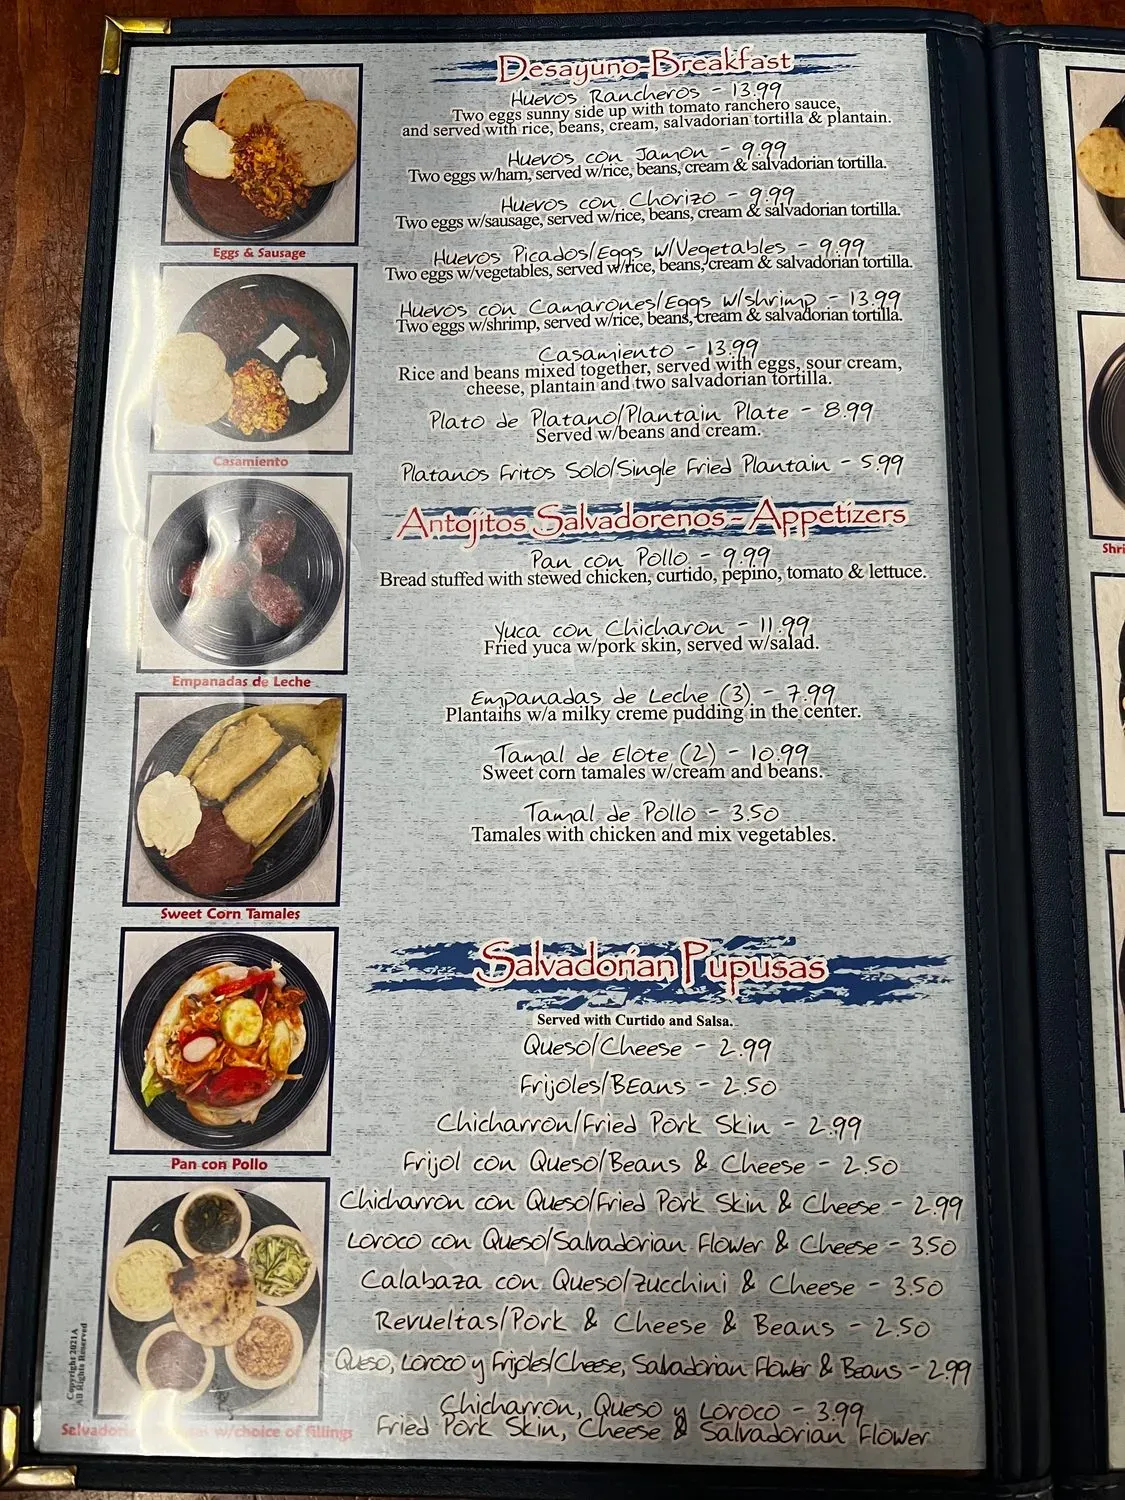 Desayuno-Breakfast
Huevos Rancheros - 13.99
Two eggs sunny side up with tomato ranchero sauce,
and served with rice, beans, cream, salvadorian tortilla & plantain.
Huevos con Jamon - 9.99
Two eggs w/ham, served w/rice, beans, cream & salvadorian tortilla.
Huevos con Chorizo - 9.99
Two eggs w/sausage, served w/rice, beans, cream & salvadorian tortilla.
Huevos Picados/Eggs w/Vegetables - 9.99
Two eggs w/vegetables, served w/rice, beans, cream & salvadorian tortilla.
Huevos con Camarones/Eggs w/shrimp - 13.99
Two eggs w/shrimp, served w/rice, beans, cream & salvadorian tortilla.
Casamiento - 13.99
Rice and beans mixed together, served with eggs, sour cream,
cheese, plantain and two salvadorian tortilla.
Plato de Platano/Plantain Plate - 8.99
Served w/beans and cream.
Platanos Fritos Solo/Single Fried Plantain - 5.99
Antojitos Salvadorenos - Appetizers
Pan con Pollo - 9.99
Bread stuffed with stewed chicken, curtido, pepino, tomato & lettuce.
Yuca con Chicharon - 11.99
Fried yuca w/pork skin, served w/salad.
Empanadas de Leche (3) - 7.99
Plantains w/a milky creme pudding in the center.
Tamal de Elote (2) - 10.99
Sweet corn tamales w/cream and beans.
Tamal de Pollo - 3.50
Tamales with chicken and mix vegetables.
Salvadorian Pupusas
Served with Curtido and Salsa.
Queso/Cheese - 2.99
Frijoles/BEans - 2.50
Chicharron/Fried Pork Skin - 2.99
Frijol con Queso/Beans & Cheese - 2.50
Chicharron con Queso/Fried Pork Skin & Cheese - 2.99
Loroco con Queso/Salvadorian Flower & Cheese - 3.50
Calabaza con Queso/Zucchini & Cheese - 3.50
Revueltas/Pork & Cheese & Beans - 2.50
Queso, Loroco y Frijoles/Cheese, Salvadorian Flower & Beans - 2.99
Chicharron, Queso y Loroco - 3.99
Fried Pork Skin, Cheese & Salvadorian Flower
Eggs & Sausage
Casamiento
Empanadas de Leche
Sweet Corn Tamales
Pan con Pollo
w/choice of fillings
Copyright 2021A
All Rights Reserved
Shri